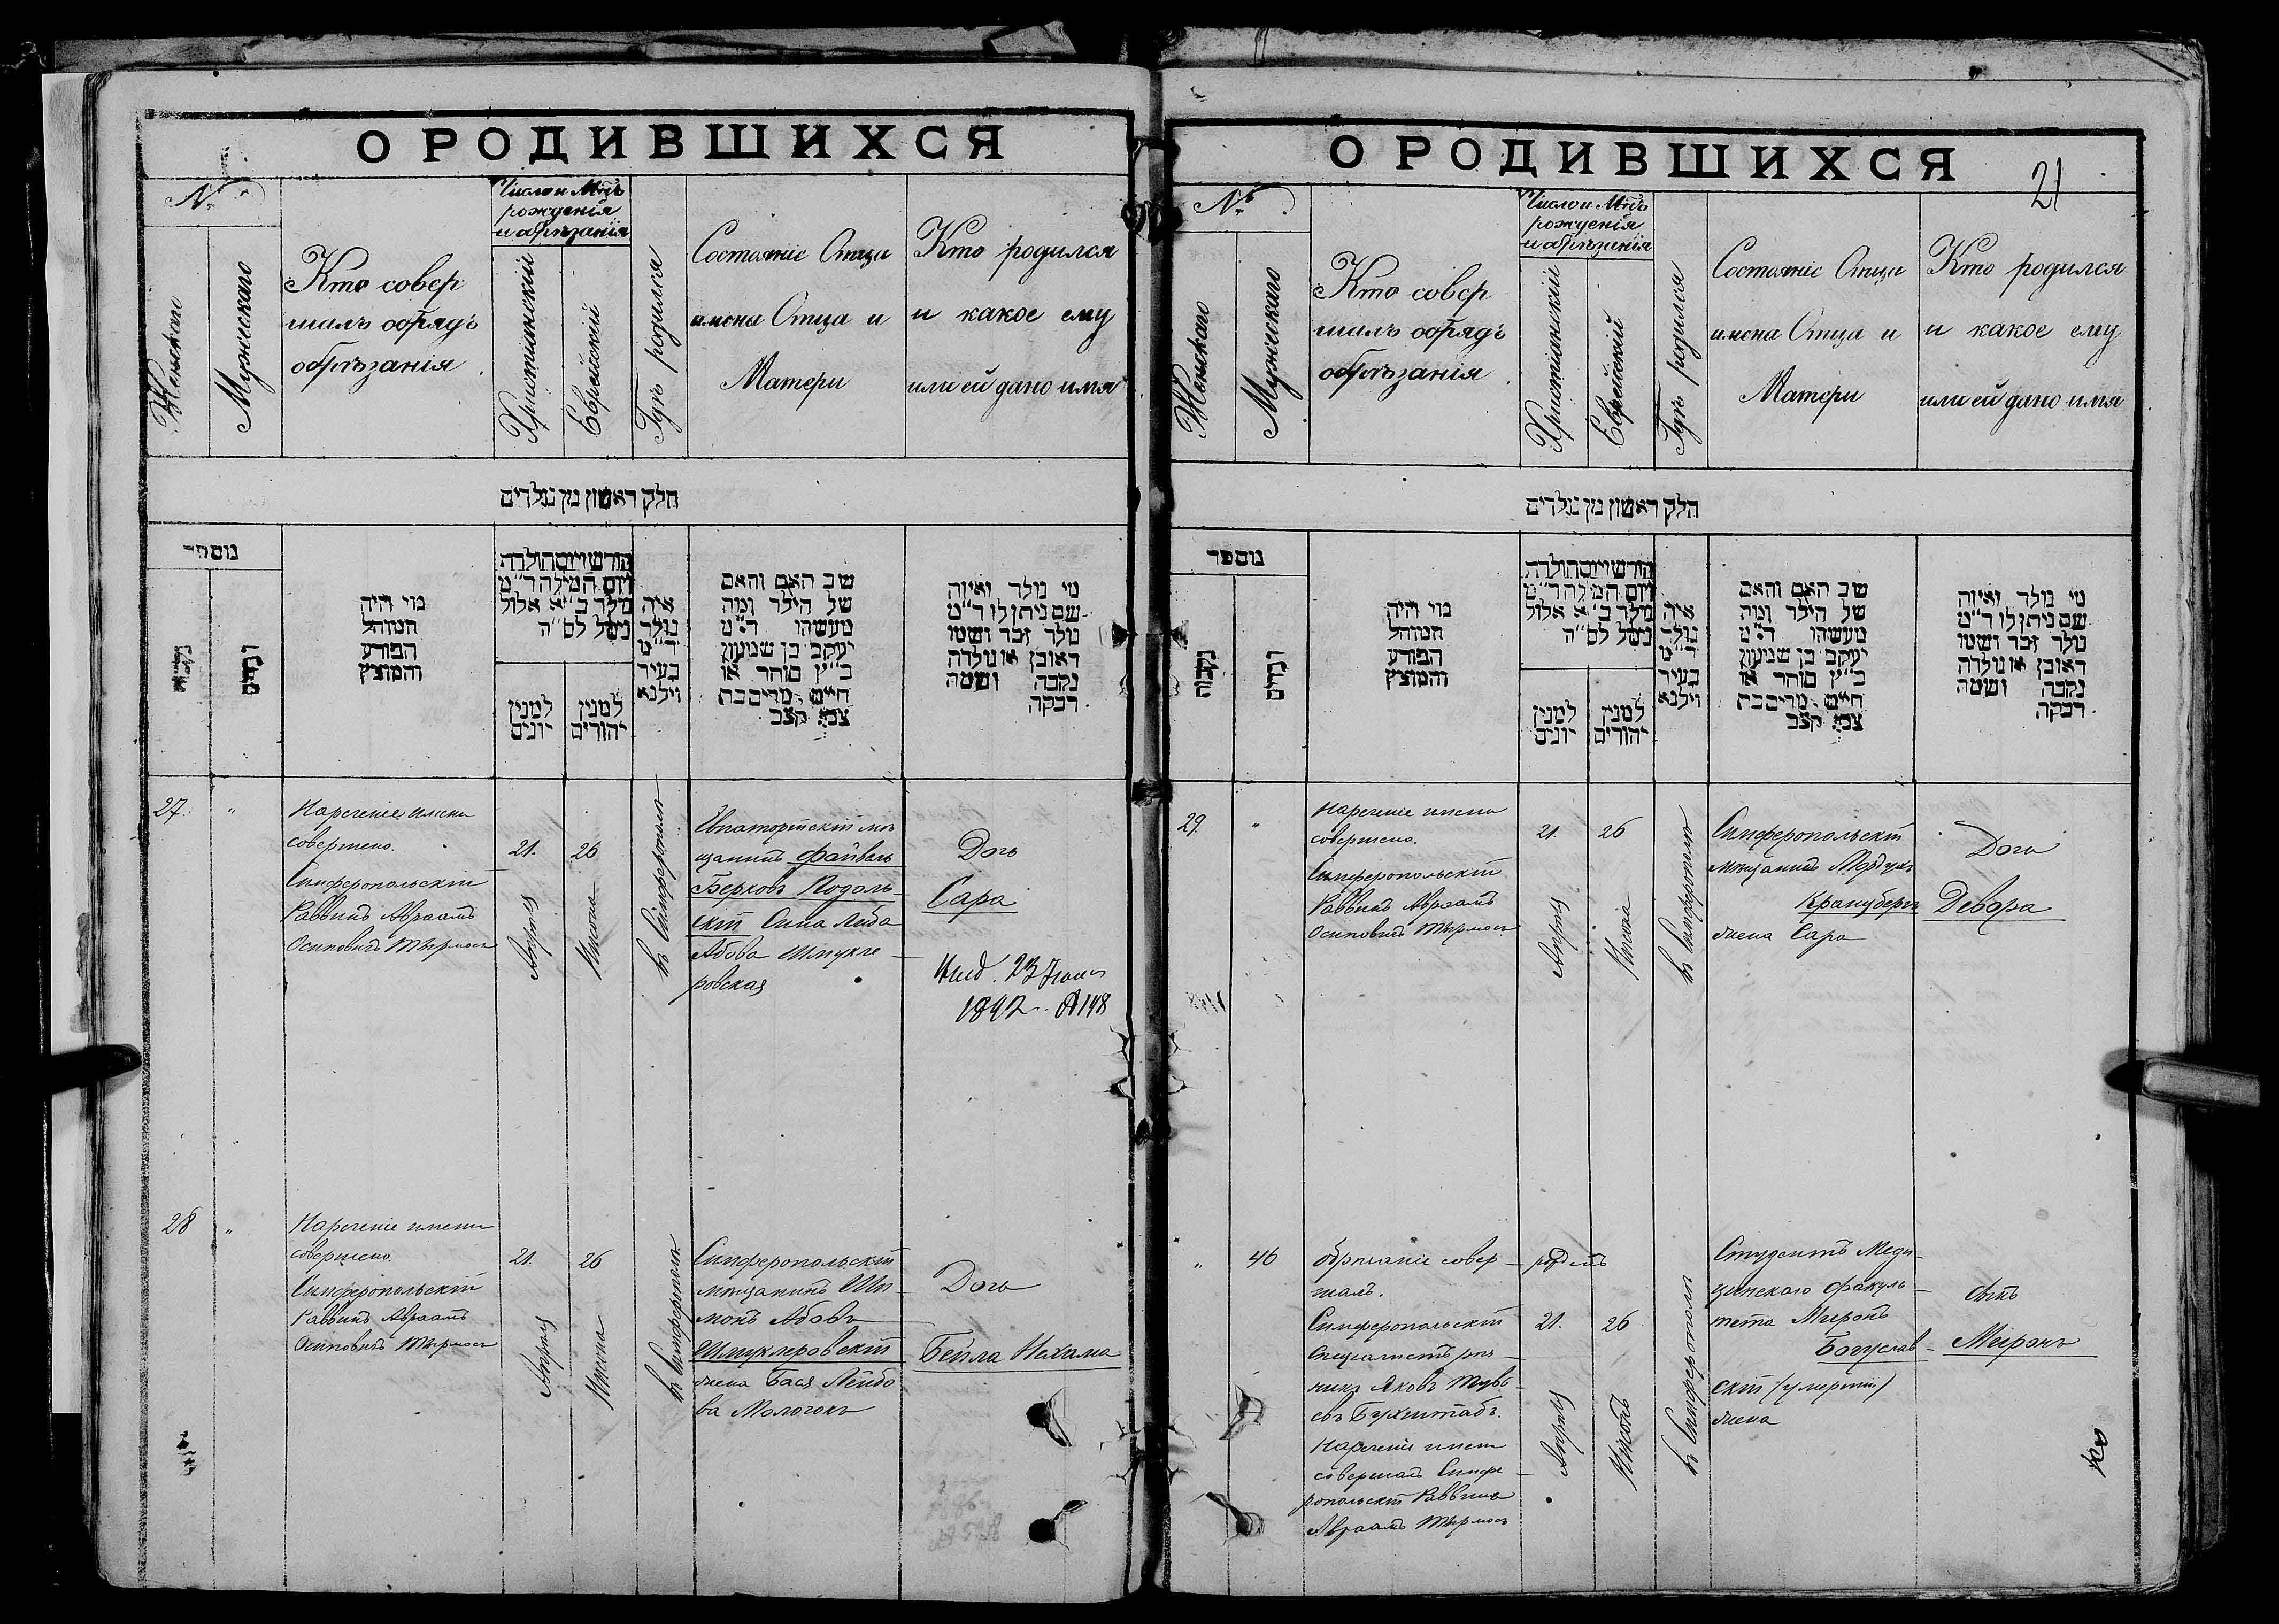 О РОДИВШИХСЯ
№
Женскаго
Мужескаго
Кто совер
шалъ обрядъ
обрѣзанія
Число и Мѣць
рожденія
и обрѣзанія
Христіанскій
Еврейскій
Гдѣ родился
Состояніе Отца
имена Отца и
Матери
Кто родился
и какое ему
или ей дано имя
חלק ראשון מן נולדים
מספר
נקבות
זכרים
מי היה
המוהל
הפורע
והמוצץ
חודש ויום הולדת
ויום המילה ד״מ
נולד ב״א אלול
נימל לס״ה
למנין
יונים
למנין
יהודים
איה
נולד
ד״מ
בעיר
וילנא
שב האם והאם
של הילד ומה
מעשהו ד״מ
יעקב בן שמעון
כ״ץ סוחר או
חייט מרים בת
צבי קצב
מי נולד ואיזה
שם ניתן לו ד״מ
נולד זכר ושמו
ראובן או נולדה
נקבה ושמה
רבקה
27.
"
Нареченіе имени
совершено.
Симферопольскій
Раввинъ Авраамъ
Осиповичъ Тырмосъ
21.
Апрѣля
26
Нисона
въ Симферополѣ
Евпаторійскій мѣ
щанинъ Файвель
Берковъ Подоль-
скій Сима Лейба
Абова Шмукле-
ровская
Дочь
Сара
Выд. 23 Іюня
1892 №148
28
"
Нареченіе имени
совершено.
Симферопольскій
Раввинъ Авраамъ
Осиповичъ Тырмосъ
21.
Апрѣля
26
Нисона
въ Симферополѣ
Симферопольскій
мѣщанинъ Ши-
монъ Абовъ
Шмуклеровскій
жена Бася Лейбо
ва Молочокъ
Дочь
Бейла Нехама
О РОДИВШИХСЯ
21
№
Женскаго
Мужескаго
Кто совер
шалъ обрядъ
обрѣзанія
Число и Мѣць
рожденія
и обрѣзанія
Христіанскій
Еврейскій
Гдѣ родился
Состояніе Отца
имена Отца и
Матери
Кто родился
и какое ему
или ей дано имя
חלק ראשון מן נולדים
מספר
נקבות
זכרים
מי היה
המוהל
הפורע
והמוצץ
חודש ויום הולדת
ויום המילה ד״מ
נולד ב״א אלול
נימל לס״ה
למנין
יונים
למנין
יהודים
איה
נולד
ד״מ
בעיר
וילנא
שב האם והאם
של הילד ומה
מעשהו ד״מ
יעקב בן שמעון
כ״ץ סוחר או
חייט מרים בת
צבי קצב
מי נולד ואיזה
שם ניתן לו ד״מ
נולד זכר ושמו
ראובן או נולדה
נקבה ושמה
רבקה
29.
"
Нареченіе имени
совершено.
Симферопольскій
Раввинъ Авраамъ
Осиповичъ Тырмосъ
21.
Апрѣля
26
Нисона
въ Симферополѣ
Симферопольскій
мѣщанинъ Мордухъ
Кранцбергъ
жена Сара
Дочь
Девора
"
46
Обрѣзаніе совер-
шалъ.
Симферопольскій
Спеціалистъ рѣз-
никъ Яковъ Тувь-
евъ Бухштабъ.
Нареченіе имени
совершалъ Симфе-
ропольскій Раввинъ
Авраамъ Тырмосъ
родился
21.
Апрѣля
26
Нисонъ
въ Симферополѣ
Студентъ Меди-
цинскаго факуль-
тета Миронъ
Богуслав-
скій (умершій)
жена
Сынъ
Миронъ